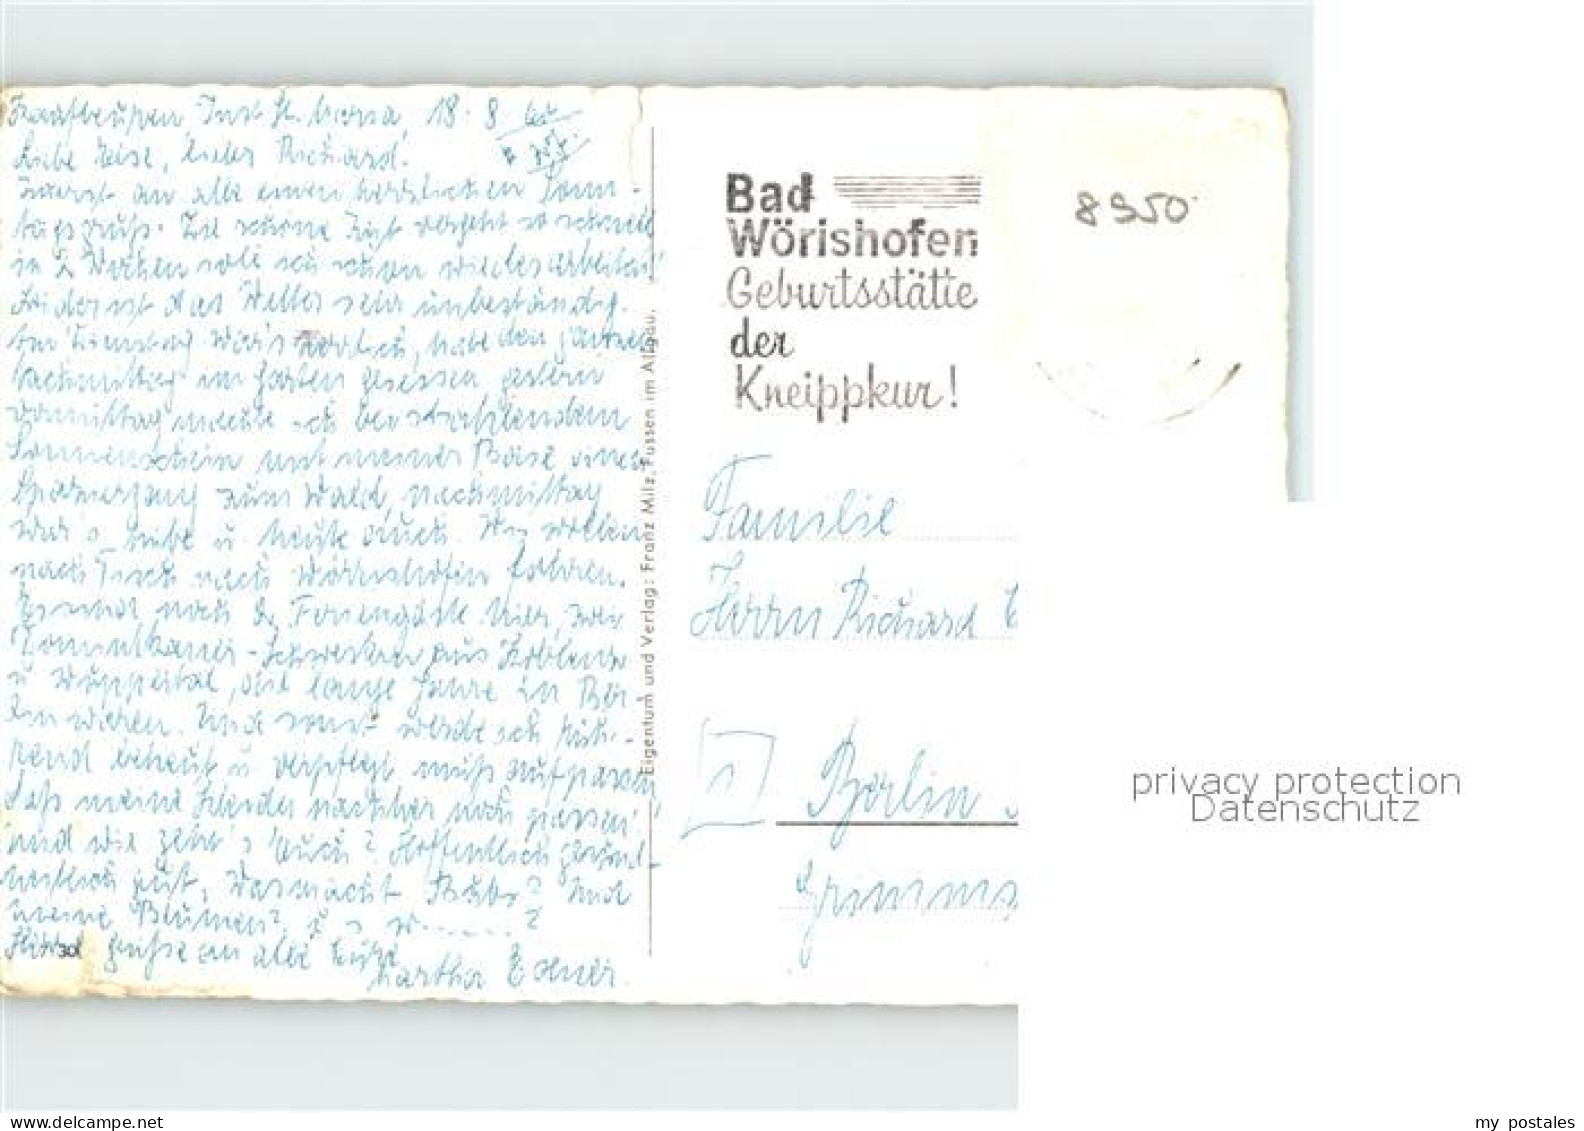 Kaufbeuren, Inst. St. Maria, 18. 8.
Liebe Liese, lieber Richard.
Zuerst an alle einen herzlichen Sonn-
tagsgruß. Die schöne Zeit vergeht so schnell
in 2 Wochen soll ich schon wieder arbeiten!
Leider ist das Wetter sehr unbeständig.
Am Dienstag war's herrlich, habe den ganzen
Nachmittag im Garten gesessen gestern
vormittag machte ich bei strahlendem
Sonnenschein mit meiner Base einen
Spaziergang zum Wald, nachmittag
war's trübe u. heute auch. Wir wollen
nach Tisch nach Wörishofen fahren.
Es sind noch 2 Feriengäste hier, zwei
Dominikaner-Schwestern aus Koblenz
u Wuppertal, die lange Jahre in Ber-
lin waren. Und sonst werde ich rüh-
rend betreut u verpflegt, muß aufpassen
daß meine Kleider nachher noch passen!
Und wie geht's Euch? Hoffentlich gesund-
heitlich gut. Was macht Bubs? Und
meine Blumen? u s w.......?
Grüße an alle Eure
Martha
301
Eigentum und Verlag: Franz Milz, Füssen im Allgäu.
Bad
Wörishofen
Geburtsstätte
der
Kneippkur!
8950
Familie
Herrn Richard
1
Berlin
privacy protection
Datenschutz
my postales
www.delcampe.net